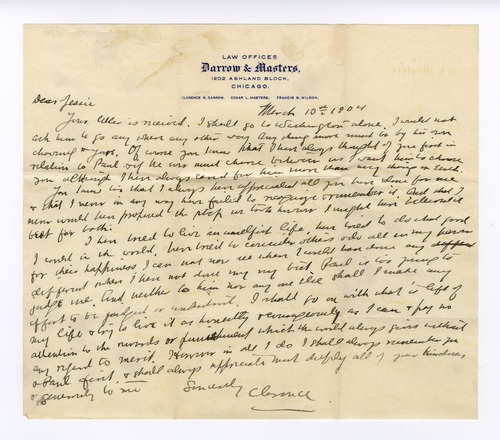 LAW OFFICES
Darrow & Masters,
1202 ASHLAND BLOCK,
CHICAGO.
CLARENCE S. DARROW. EDGAR L. MASTERS. FRANCIS S. WILSON.
March 10th 1904
Dear Jessie
Your letter is received. I shall go to Washington alone. I would not
ask him to go any where any other way. Any thing more must be by his own
choosing & yours. Of course you know that I have always thought of you first in
relation to Paul & if he ever must choose between us I want him to choose
you although I have always cared for him more than any thing on Earth
You know too that I always have appreciated all you have done for me
& that I never in any way have failed to recognize & remember it. And that I
never would have proposed the step we took unless I thought best
for both.
I have tried to live an unselfish life, have tried to do what good
I could in the world, have tried to consider others & do all in my power
for their happiness I can not now see where I could have done any
different or when I have not done my best. Paul is too young to
judge me. And neither to him nor any one else shall I make any
effort to be judged or understood. I shall go on with what is left of
my life & try to live it as honestly & courageously as I can & pay no
attention to the rewards or punishment which the world always gives without
any regard to merit. However in all I do I shall always remember you
& Paul first, & shall always appreciate most deeply all of your kindness
& generosity to me
Sincerely
Clarence